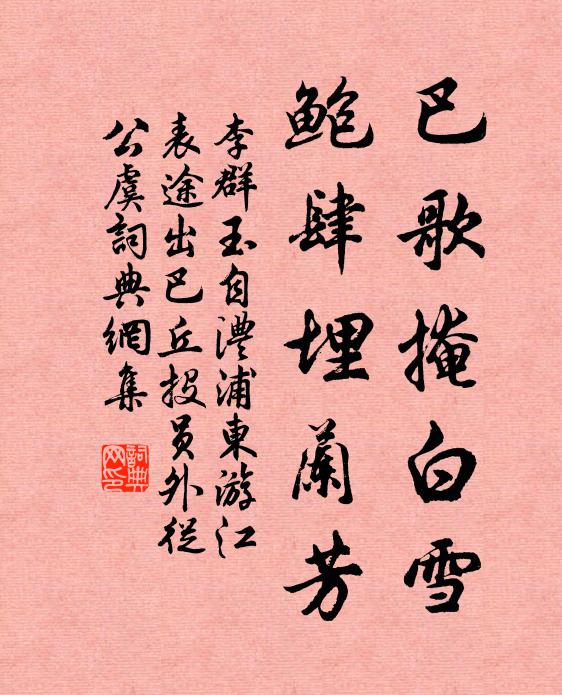 巴歌掩白雪
鲍肆埋蘭芳
李群玉自澧浦東游江
表途出巴丘投員外從
公虞詞典網集
詞典
网印